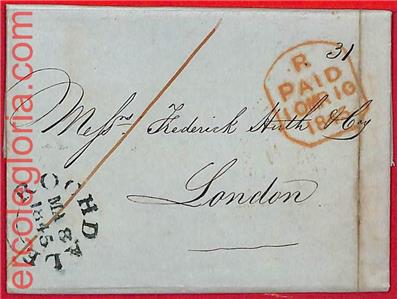 31
P
PAID
10 MR 10
1845
Messrs Frederick Huth & Coy
London
ROCHDALE
1845
ercolegloria.com